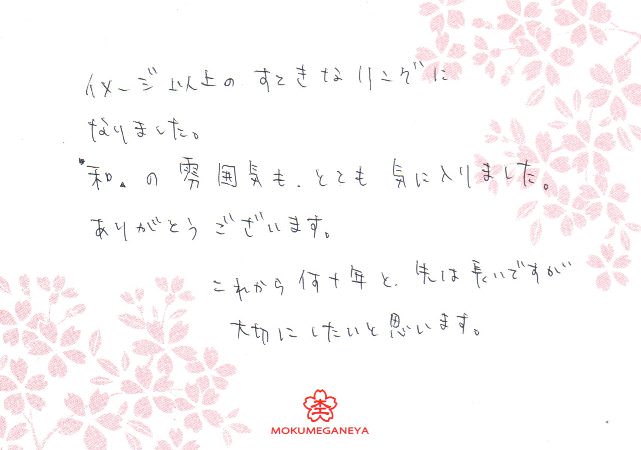 イメージ以上のすてきなリングに
なりました。
"和"の雰囲気も、とても気に入りました。
ありがとうございます。
これから何十年と、先は長いですが
大切にしたいと思います。
杢
MOKUMEGANEYA